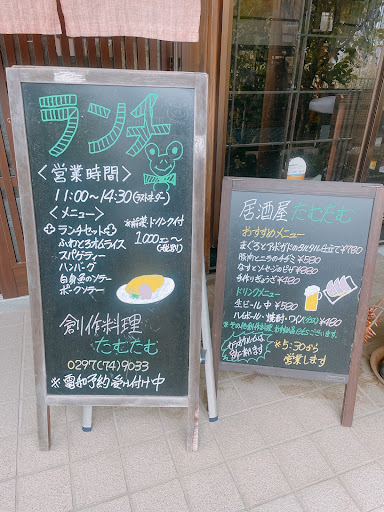 ランチ
〈営業時間〉
11:00〜14:30(ラストオーダー)
〈メニュー〉
ランチセット ※前菜・ドリンク付
ふわとろオムライス 1,000円〜
スパゲティー (税別)
ハンバーグ
白身魚のソテー
ポークソテー
創作料理
たむたむ
0297(74)9033
※電話予約受け付け中
居酒屋 たむたむ
おすすめメニュー
まぐろとアボカドのタルタル仕立て¥780
豚肉とニラのチヂミ ¥580
なすとソーセージのピザ ¥680
手作りぎょうざ ¥480
ドリンクメニュー
生ビール中 ¥580
ハイボール・焼酎・ワイン(グラス)¥480
※その他創作料理
ございます。
※5:30から
営業します